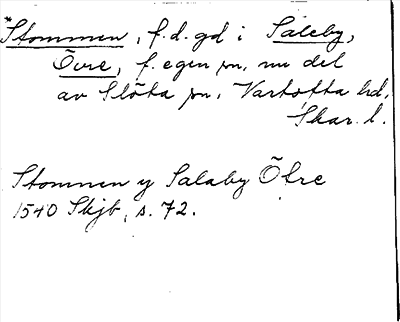 *Stommen, f.d. gd i Saleby,
Övre, f. egen sn, nu del
av Slöta sn, Vartofta hd,
Skar. l.
Stommen y Salaby Öfre
1540 Skjb, s. 72.